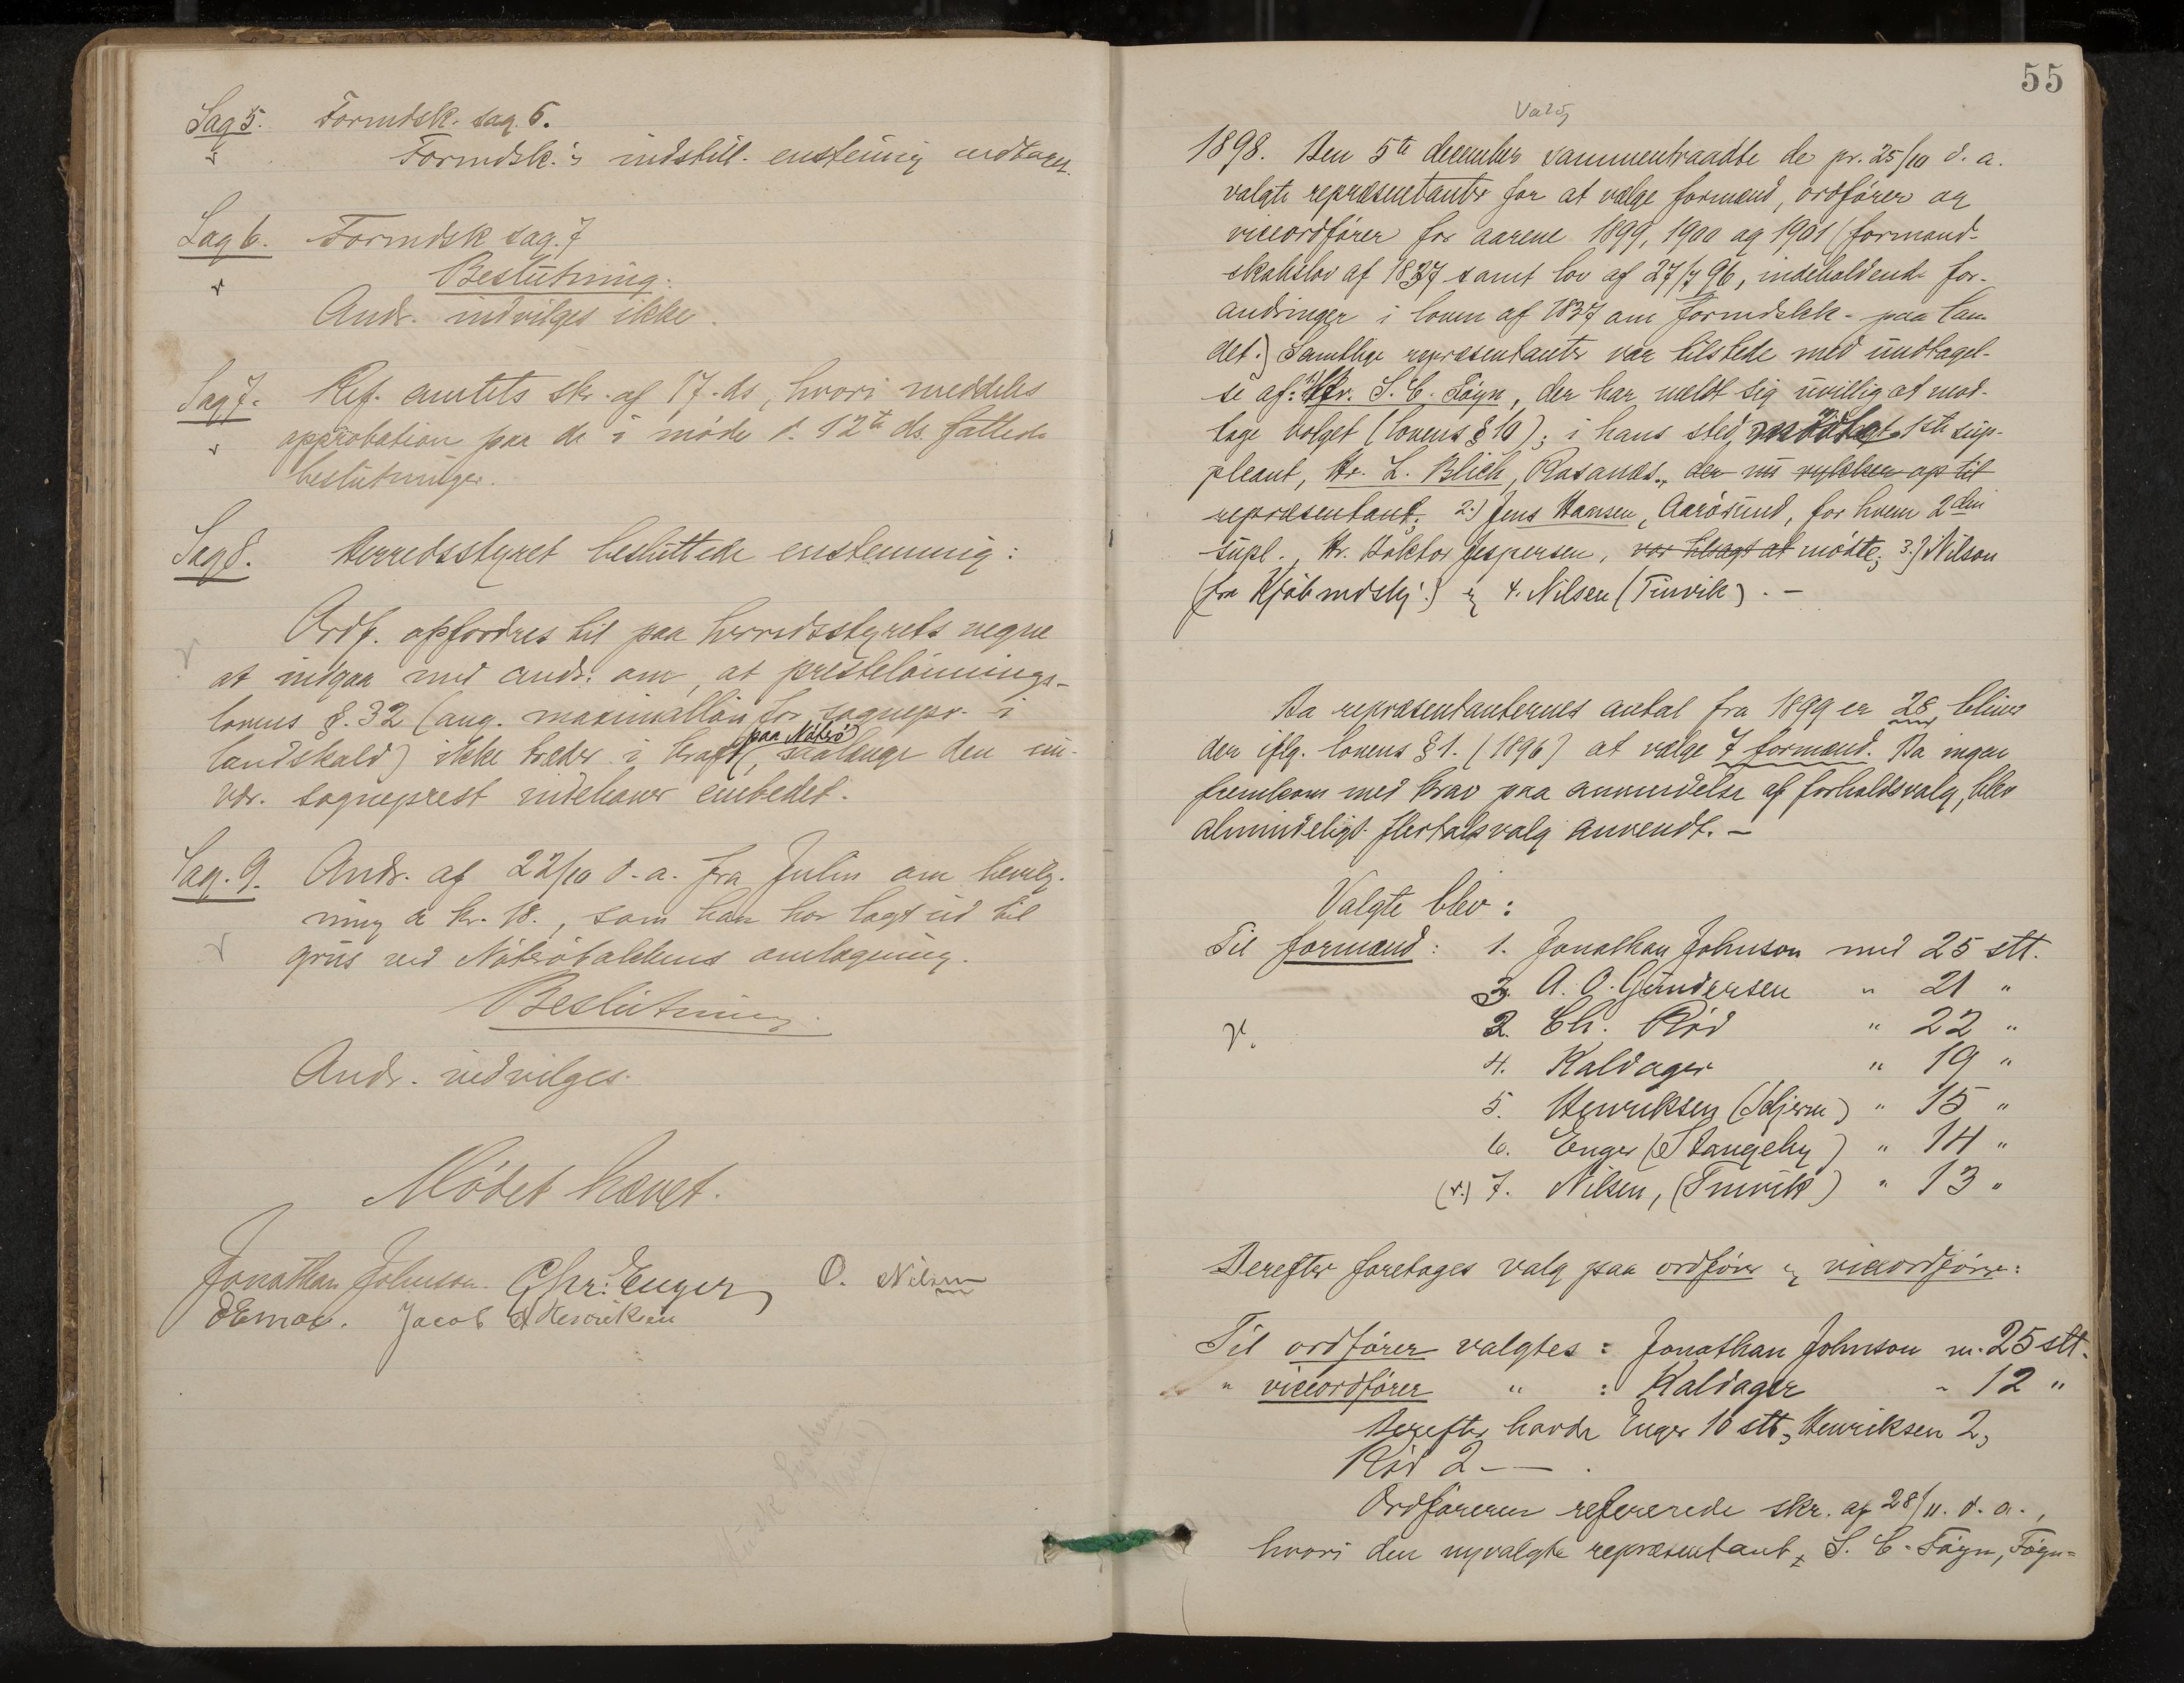 Sag 5. Formdsk. sag. 6.
Formdsk.'s indstill. enstemig vedtaget.
Sag 6. Formdsk sag. 7
Beslutning:
Andr. indvilges ikke.
Sag 7. Ref. amtets skr. af 17. ds, hvori meddeles
approbation paa de i møde d. 12te ds. fattede
beslutninger.
Sag 8. Herredsstyret besluttede enstemmig:
Ordf. opfordres til paa herredsstyrets vegne
at indgaa med andr. om, at prestelønnings-
lovens §. 32 (ang. maximalløn for sognepr. i
landskald) ikke træder i kraft (paa Nøtrø), saalænge den nu-
vær. sogneprest indehaver embedet.
Sag. 9. Andr. af 22/10 d. a. fra Julin om bevilg-
ning a kr. 18., som han har lagt ud til
grus ved Nøtrøbakkens omlægning.
Beslutning.
Andr. indvilges.
Mødet hævet.
Jonathan Johnson. Chr. Enger O. Nilsen
Jacob A Henriksen
55
Valg
1898. Den 5te december sammentraadte de pr. 25/10 d. a.
valgte repræsentanter for at vælge formænd, ordfører og
viceordfører for aarene 1899, 1900 og 1901 (formand-
skabslov af 1837 samt lov af 27/7 96, indeholdende for-
andringer i loven af 1837 om formdskk. paa lan
det.) Samtlige repræsentanter var tilstede med undtagel-
se af: 1) Hr. S. C. Føyn, der har meldt sig uvillig at mod-
tage valget (lovens § 10); i hans sted mødte 1ste sup-
pleant, Hr. L. Blich, Rosanæs., der nu rykker op til
repræsentant; 2.) Jens Hansen, Aarøsund, for hvem 2den
supl., Hr. Doktor Jespersen, var tilsagt at mødte; 3.) Nilson
(fra Kjøbmdskj.) og 4. Nilsen (Tinvik). —
Da repræsentanternes antal fra 1899 er 28, bliver
der iflg. lovens § 1. (1896) at vælge 7 formænd. Da ingen
fremkom med krav paa anvendelse af forholdsvalg, blev
almindeligt flertalsvalg anvendt. —
Valgte blev:
Til formænd: 1. Jonathan Johnson med 25 stt.
3. A. O. Gundersen " 21 "
2. Ch. Rød " 22 "
4. Kaldager " 19 "
5. Henriksen (Skjerve) " 15 "
6. Enger (Stangeby) " 14 "
7. Nilsen, (Tinvik) " 13 "
Derefter foretages valg paa ordfører og viceordfører:
Til ordfører valgtes: Jonathan Johnson m. 25 stt.
" viceordfører " : Kaldager " 12 "
Derefter havde Enger 10 stt, Henriksen 2,
Rød 2 —
Ordføreren refererede skr. af 28/11. d. a.,
hvori den nyvalgte repræsentant, S. C. Føyn, Føyn=